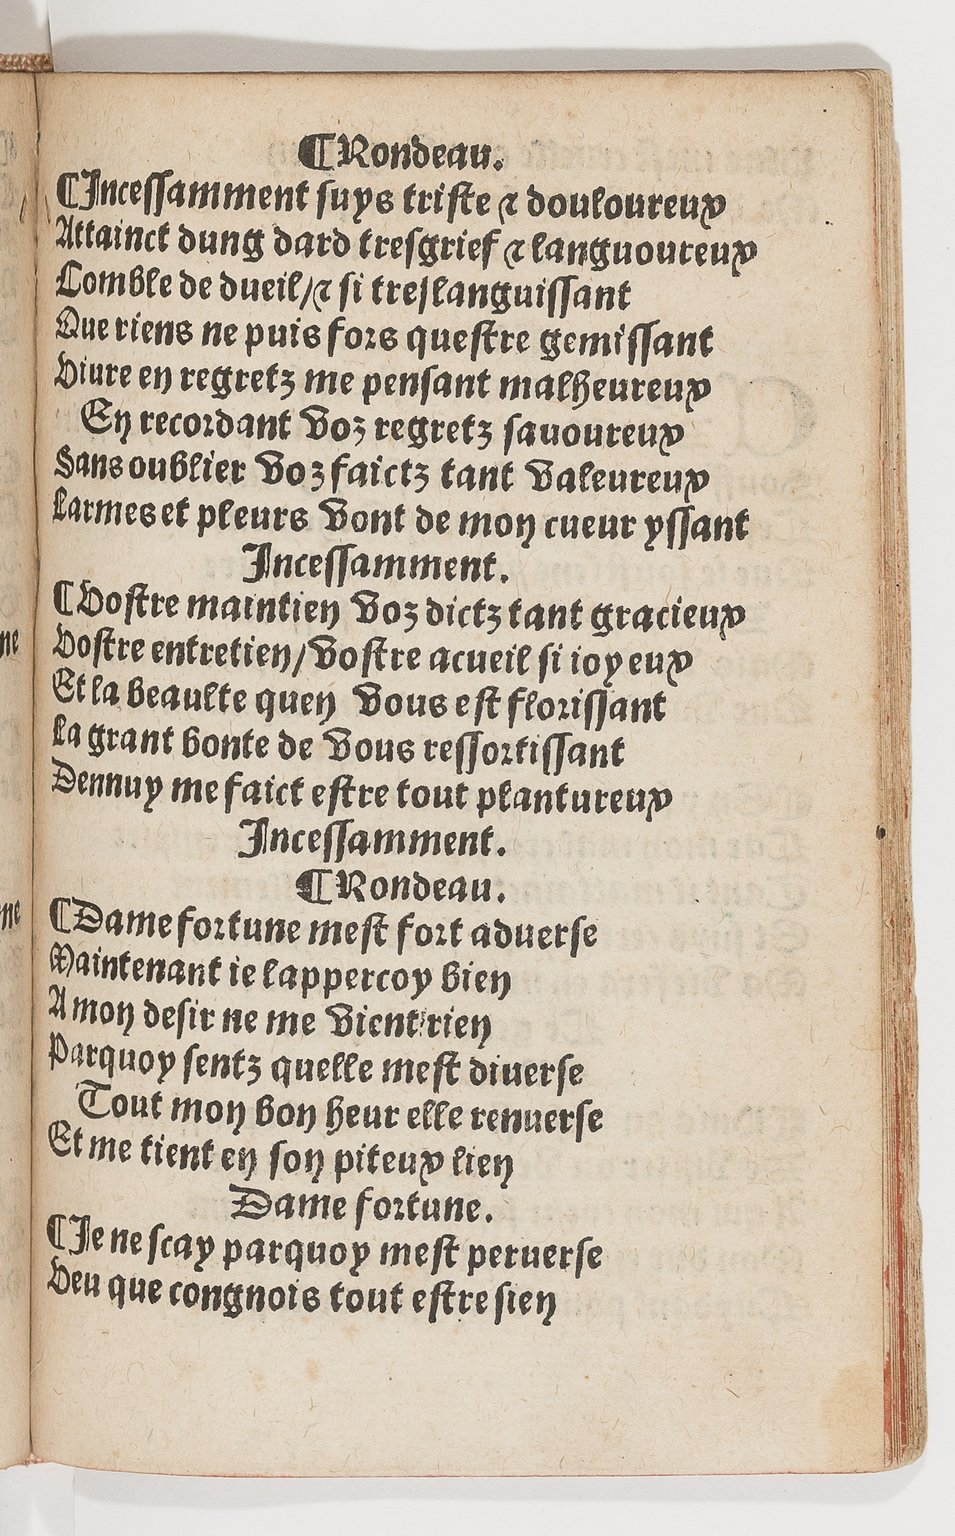 ¶Rondeau.
¶Incessamment suys triste & douloureux
Attainct dung dard tresgrief & languoureux
Comble de dueil/& si treslanguissant
Que riens ne puis fors questre gemissant
Viure en regretz me pensant malheureux
En recordant voz regretz sauoureux
Sans oublier voz faictz tant valeureux
Larmes et pleurs vont de mon cueur yssant
Incessamment.
¶Vostre maintien voz dictz tant gracieux
Vostre entretien/vostre acueil si ioyeux
Et la beaulte quen vous est florissant
La grant bonte de vous ressortissant
Dennuy me faict estre tout plantureux
Incessamment.
¶Rondeau.
¶Dame fortune mest fort aduerse
Maintenant ie lappercoy bien
A mon desir ne me vient rien
Parquoy sentz quelle mest diuerse
Tout mon bon heur elle renuerse
Et me tient en son piteux lien
Dame fortune.
¶Je ne scay parquoy mest peruerse
Veu que congnois tout estre sien
ne
ne